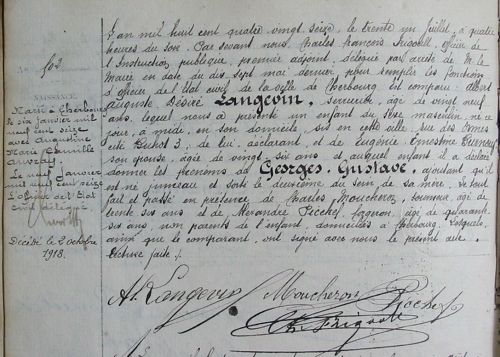 503
NAISSANCE
Marié à Cherbourg
le six janvier mil
neuf cent seize
avec Augustine
Marie
Le neuf janvier
mil neuf cent seize
L'Officier de l'Etat
Décédé le 2 octobre
1918.
L'an mil huit cent quatre vingt seize, le trente un Juillet, à quatre
heures du soir. Par devant nous, Charles François Frigoult, officier de
l'Instruction publique, premier adjoint, délégué par arrêté de M. le
Maire en date du dix sept mai dernier pour remplir les fonctions
d'officier de l'état civil de la ville de Cherbourg, est comparu Albert
Auguste Désiré Langevin, serrurier, âgé de vingt neuf
ans, lequel nous a présenté un enfant du sexe masculin, né ce
jour, à midi, en son domicile, sis en cette ville, rue des Ormes
cité 3, de lui, déclarant, et de Eugénie Ernestine
son épouse, âgée de vingt six ans, et auquel enfant il a déclaré
donner les prénoms de Georges-Gustave, ajoutant qu'il
est né jumeau et sorti le deuxième du sein de sa mère. Le tout
fait et passé en présence de Charles Moucheron, tourneur, âgé de
trente six ans et de Alexandre forgeron, âgé de quarante
six ans, non parents de l'enfant, domiciliés à Cherbourg. Lesquels,
ainsi que le comparant, ont signé avec nous le présent acte.
Lecture faite.
A. Langevin Moucheron
Ch. Frigoult